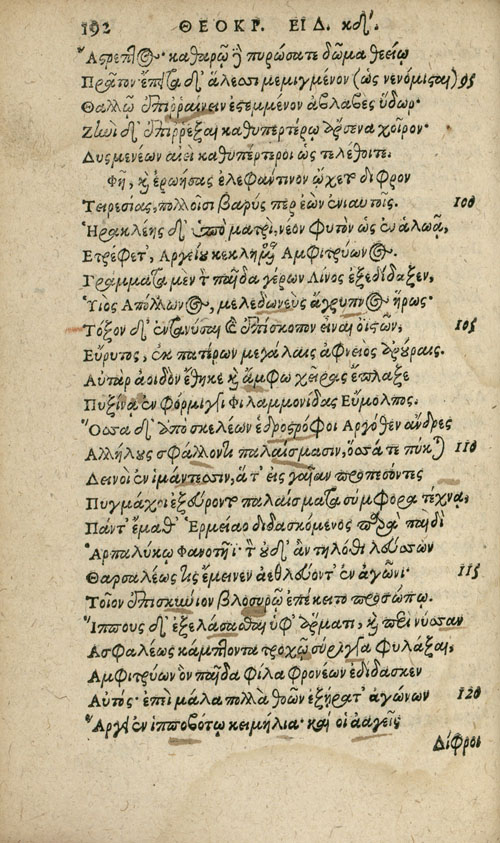 192 ΘΕΟΚΡ. ΕΙΔ. κδ'.
Ἄσρεπτος· καθαρῷ ἢ πυρώσατε δῶμα θεείῳ
Πρᾶτον· ἔπειτα δ' ἅλεσσι μεμιγμένον (ὡς νενόμισται) 95
Θαλλῷ ἐπιρραίνειν ἐστεμμένον ἀβλαβὲς ὕδωρ·
Ζηνὶ δ' ἐπιρρέξαι καθυπερτέρῳ ἄρσενα χοῖρον·
Δυσμενέων αἰεὶ καθυπέρτεροι ὡς τελέθοιτε.
Φῆ, καὶ ἐρωήσας ἐλεφάντινον ᾤχετο δίφρον
Τειρεσίας, πολλοῖσι βαρύς περ ἐὼν ἐνιαυτοῖς. 100
Ἡρακλέης δ' ὑπὸ ματρὶ, νέον φυτὸν ὡς ἐν ἀλωᾷ,
Ἐτρέφετ', Ἀργείου κεκλημένος Ἀμφιτρύωνος.
Γράμματα μὲν τὸν παῖδα γέρων Λίνος ἐξεδίδαξεν,
Ὑιὸς Ἀπόλλωνος, μελεδωνεὺς ἄγρυπνος ἥρως·
Τόξον δ' ἐντανύσαι καὶ ἐπίσκοπον εἶναι ὀϊστῶν, 105
Εὔρυτος, ἐκ πατέρων μεγάλαις ἀφνειὸς ἀρούραις.
Αὐτὰρ ἀοιδὸν ἔθηκε καὶ ἄμφω χεῖρας ἔπλαξε
Πυξίνᾳ ἐν φόρμιγγι Φιλαμμονίδας Εὔμολπος.
Ὅσσα δ' ἀπὸ σκελέων ἑδροστρόφοι Ἀργόθεν ἄνδρες
Ἀλλήλους σφάλλοντι παλαίσμασιν, ὅσσά τε πύκται 110
Δεινοὶ ἐν ἱμάντεσσιν, ἅ τ' εἰς γαῖαν προπεσόντες
Πυγμάχοι ἐξεύροντο παλαίσματα σύμφορα τέχνᾳ,
Πάντ' ἔμαθ' Ἑρμείαο διδασκόμενος παρὰ παιδὶ
Ἁρπαλύκῳ Φανοτῆϊ· τὸν οὐδ' ἂν τηλόθι λεύσσων
Θαρσαλέως τις ἔμεινεν ἀεθλεύοντ' ἐν ἀγῶνι· 115
Τοῖον ἐπισκύνιον βλοσυρῷ ἐπέκειτο προσώπῳ.
Ἵππους δ' ἐξελάσασθαι ὑφ' ἅρματι, καὶ περὶ νύσσαν
Ἀσφαλέως κάμπτοντα τροχῷ σύριγγα φυλάξαι,
Ἀμφιτρύων ὃν παῖδα φίλα φρονέων ἐδίδασκεν
Αὐτός· ἐπεὶ μάλα πολλὰ θοῶν ἐξήρατ' ἀγώνων 120
Ἄργει ἐν ἱπποβότῳ κειμήλια· καί οἱ ἀαγεῖς
Δίφροι